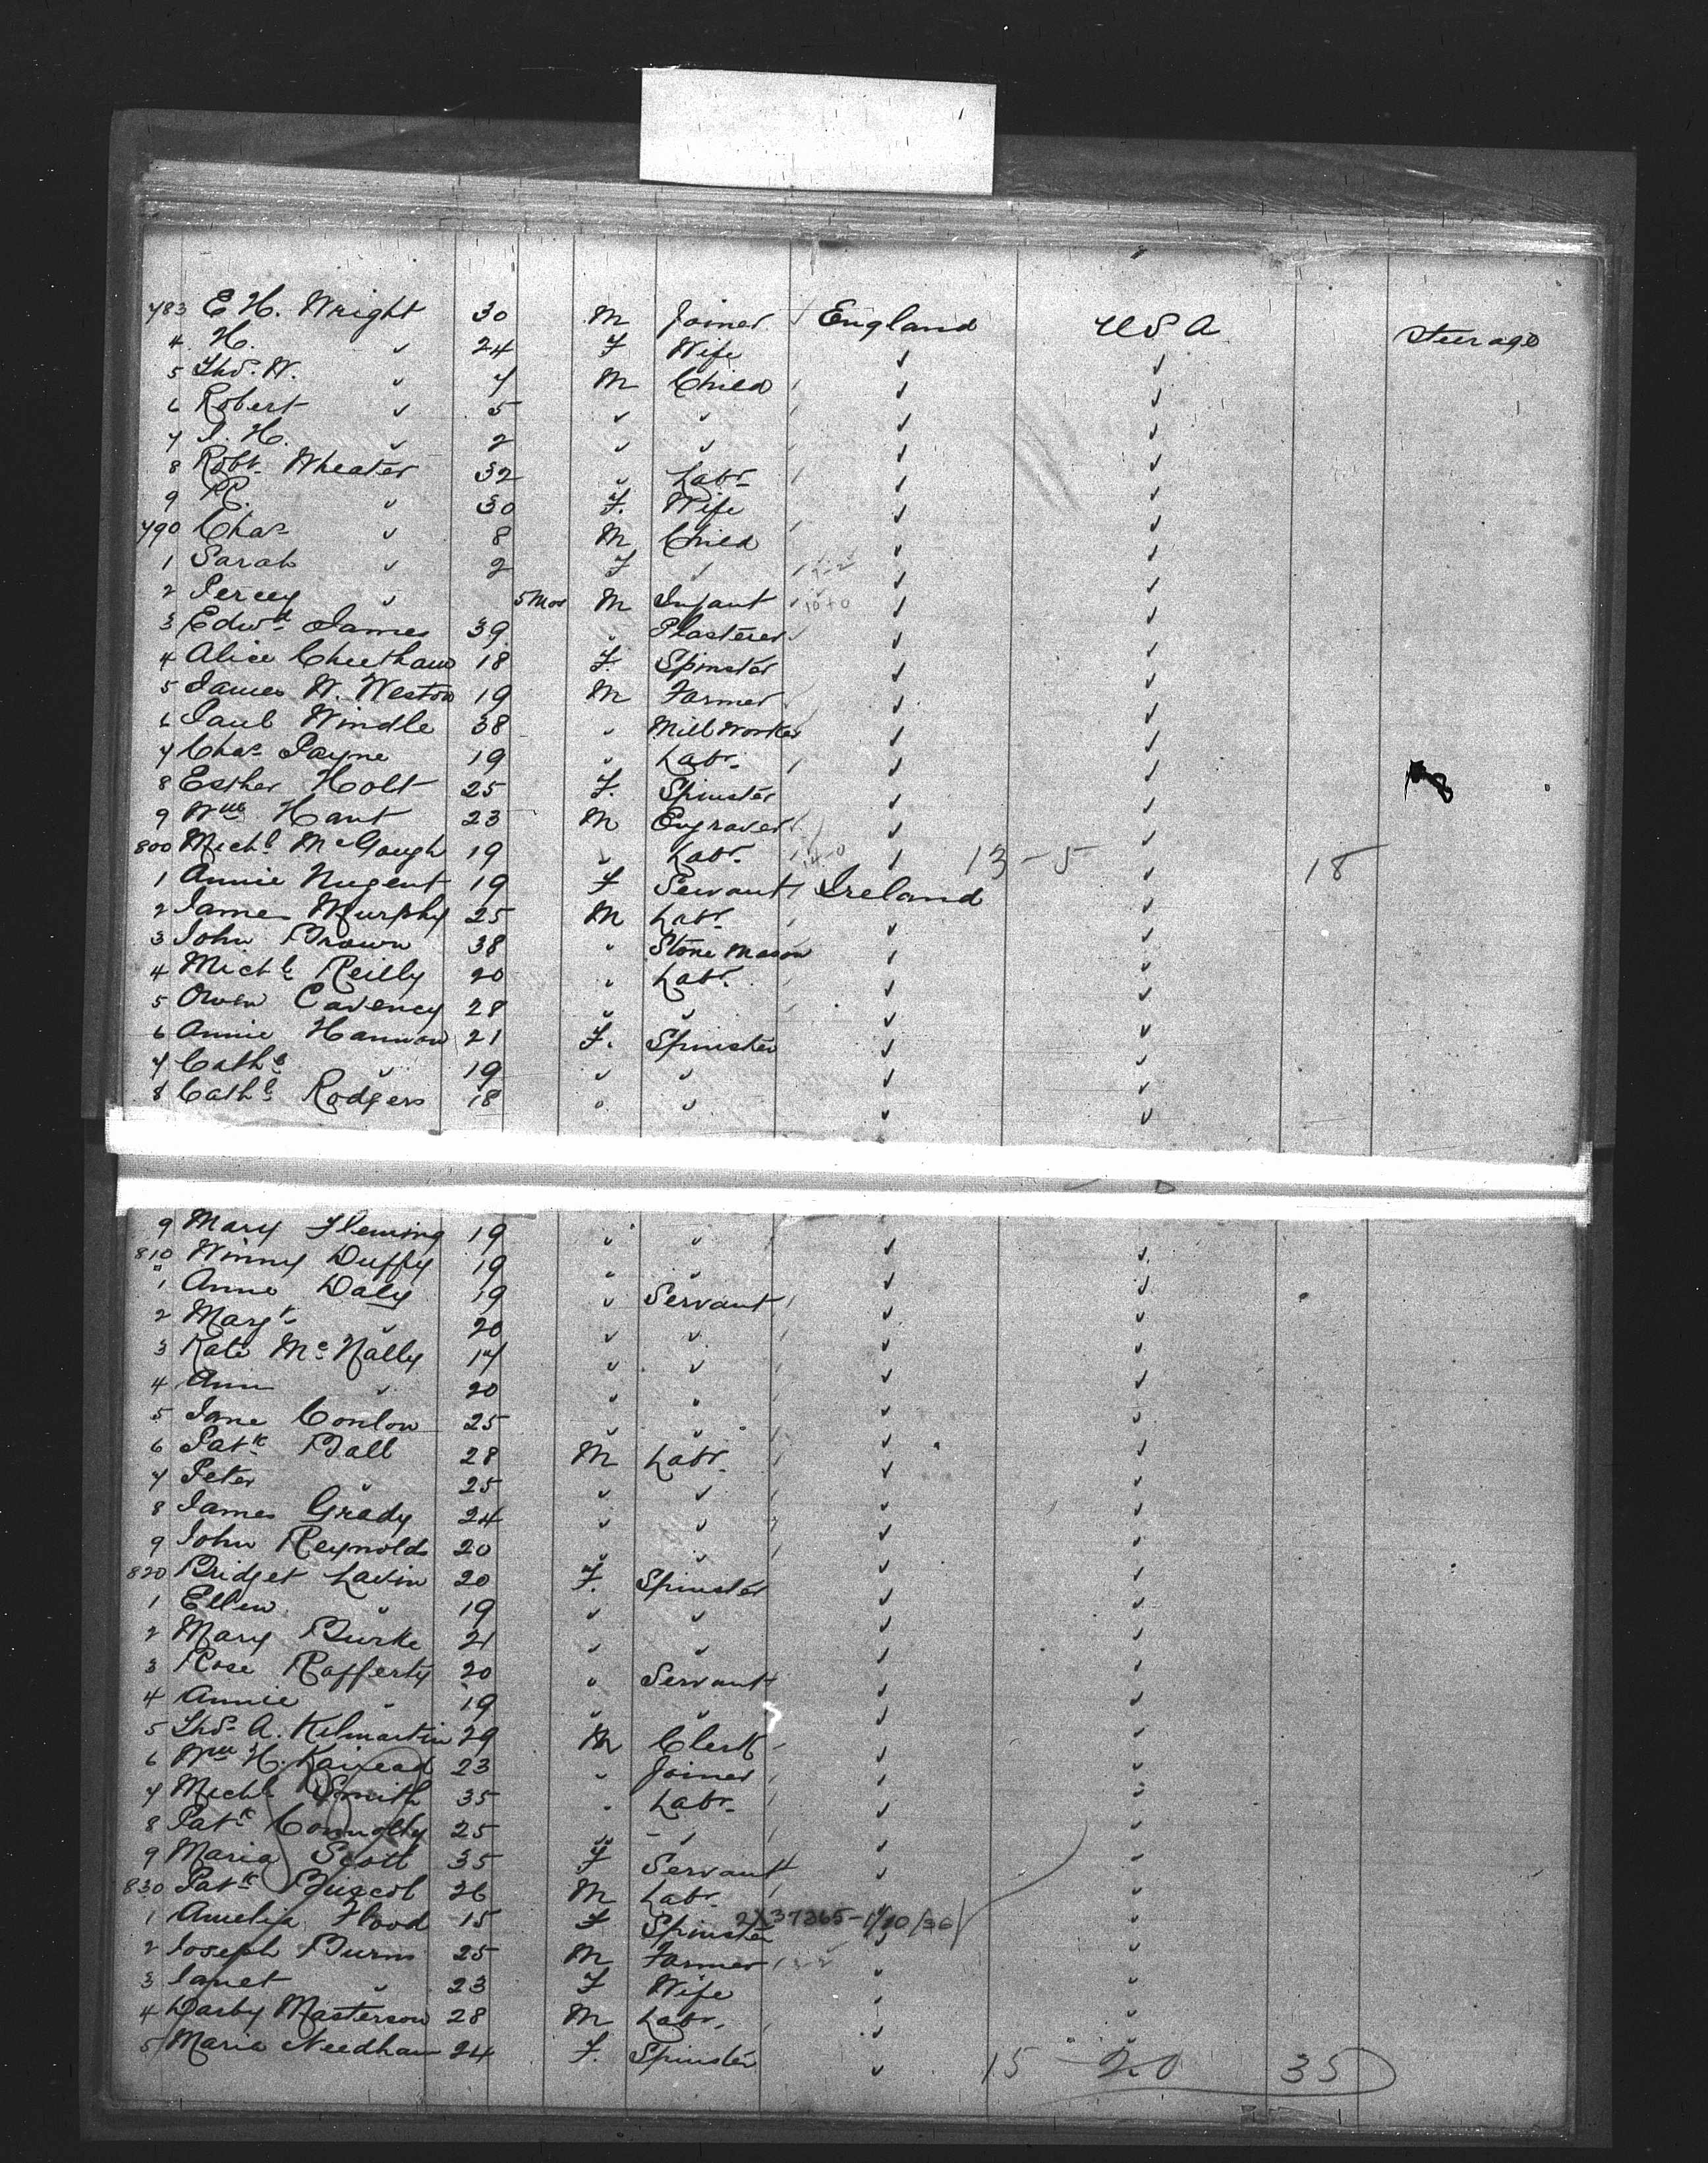 783 E H. Wright 30 M Joiner England USA Steerage
4 H. " 24 F Wife " "
5 Thos. W. " 7 M Child " "
6 Robert " 5 " " " "
7 J. H. " 2 " " " "
8 Robt. Wheater 32 " Labr. " "
9 R. " 30 F. Wife " "
790 Chas " 8 M Child " "
1 Sarah " 2 F " " "
2 Percy " 5 Mos M Infant " "
3 Edwd James 39 " Plasterer " "
4 Alice Cheetham 18 F. Spinster " "
5 James W. Weston 19 M Farmer " "
6 Paul Windle 38 " Mill Worker " "
7 Chas Payne 19 " Labr. " "
8 Esther Holt 25 F. Spinster " "
9 Wm Hant 23 M Engraver " "
800 Michl McGough 19 " Labr. " 13 - 5 " 18
1 Annie Nugent 19 F Servant Ireland "
2 James Murphy 25 M Labr. " "
3 John Brown 38 " Stone Mason " "
4 Michl Reilly 20 " Labr. " "
5 Owen Cavency 28 " " " "
6 Annie Hannon 21 F. Spinster " "
7 Cathe " 19 " " " "
8 Cathe Rodgers 18 " " " "
9 Mary Fleming 19 " " " "
810 Winny Duffy 19 " " " "
1 Anne Daly 19 " Servant " "
2 Margt " 20 " " " "
3 Kate McNally 17 " " " "
4 Ann " 20 " " " "
5 Jane Conlon 25 " " " "
6 Patk Ball 28 M Labr. " "
7 Peter " 25 " " " "
8 James Grady 24 " " " "
9 John Reynolds 20 " " " "
820 Bridget Lavin 20 F. Spinster " "
1 Ellen " 19 " " " "
2 Mary Burke 21 " " " "
3 Rose Rafferty 20 " Servant " "
4 Annie " 19 " " " "
5 Thos. A. Kilmartin 29 M Clerk " "
6 Wm H. 23 " Joiner " "
7 Michl Smith 35 " Labr. " "
8 Patk Connolly 25 " " " "
9 Maria Scott 35 F Servant " "
830 Patk 26 M Labr. " "
1 Amelia Flood 15 F Spinster 2X37365-1/10/36 " "
2 Joseph Burns 25 M Farmer " "
3 Janet " 23 F Wife " "
4 Darby Masterson 28 M Labr. " "
5 Maria Needham 24 F. Spinster " "
15 - 20 35